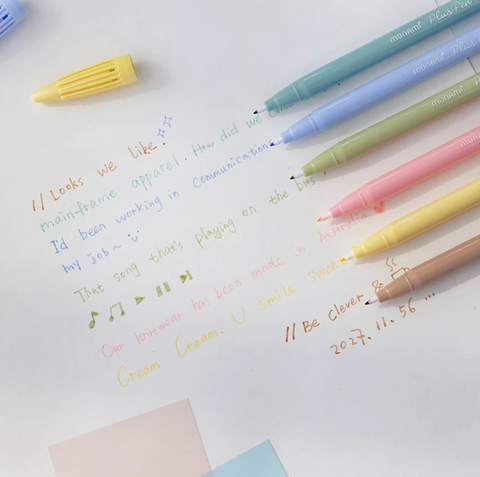 monami Plus Pen
monami Plus Pen
monami Plus
monami
monami
monami
// Looks we like.
main-frame apparel. How did we
I'd been working in Communication
my job~
That song that's playing on the bus
Our knitwear has been made in Australia
Cream Cream. U smile swee
// Be clever
2027. 11. 56 ...